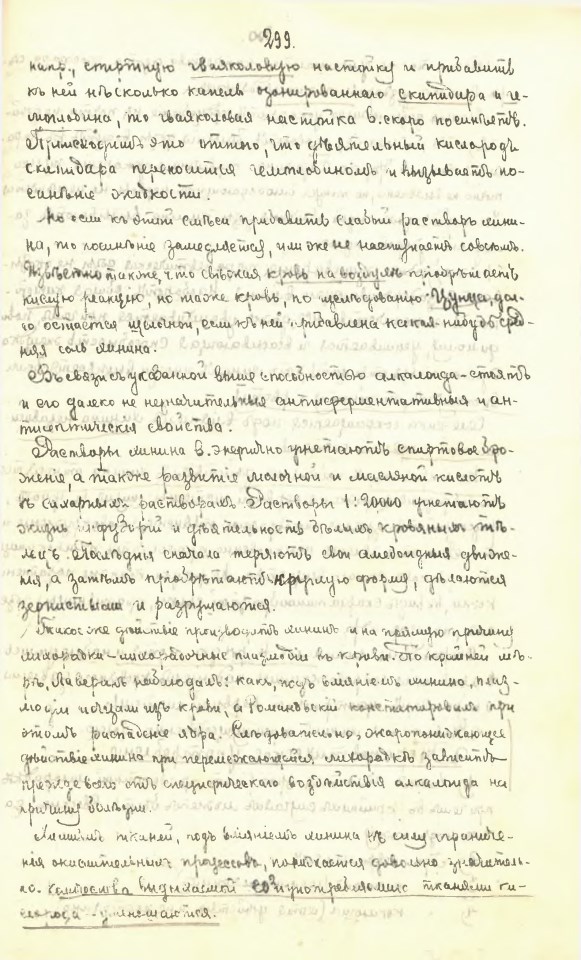 299.
напр., спиртную гваяколовую настойку и прибавить
къ ней нѣсколько капель озонированнаго скипидара и ге-
моглобина, то гваяколовая настойка в. скоро посинѣетъ.
Происходитъ это оттого, что дѣятельный кислородъ
скипидара переносится гемоглобиномъ и вызываетъ по-
синѣніе жидкости.
Но если къ этой смѣси прибавить слабый растворъ хини-
на, то посинѣніе замедляется, или же не наступаетъ совсѣмъ.
Извѣстно также, что свѣжая кровь на воздухѣ пріобрѣтаетъ
кислую реакцію, но таже кровь, по изслѣдованію Цунца, дол-
го остается щелочной, если къ ней прибавлена какая-нибудь сред-
няя соль хинина.
Въ связи съ указанной выше способностью алкалоида - стоятъ
и его далеко не незначительныя антиферментативныя и ан-
тисептическія свойства.
Растворы хинина в. энергично угнетаютъ спиртовое бро-
женіе, а также развитіе молочной и масляной кислотъ
въ сахарныхъ растворахъ. Растворы 1:20000 угнетаютъ
жизнь инфузорій и дѣятельность бѣлыхъ кровяныхъ тѣ-
лецъ. Послѣднія сначала теряютъ свои амебоидныя движе-
нія, а затѣмъ пріобрѣтаютъ круглую форму, дѣлаются
зернистыми и разрушаются.
Такое же дѣйствіе производитъ хининъ и на прямую причину
лихорадки - лихорадочные плазмодіи въ крови. По крайней мѣ-
рѣ, Лаверанъ наблюдалъ, какъ, подъ вліяніемъ хинина, плаз-
модіи исчезали изъ крови, а Романовскій констатировалъ при
этомъ распаденіе ядра. Слѣдовательно, жаропонижающее
дѣйствіе хинина при перемежающейся лихорадкѣ зависитъ
прежде всего отъ специфическаго воздѣйствія алкалоида на
причину болѣзни.
тканей, подъ вліяніемъ хинина въ силу ограниче-
нія окислительныхъ процессовъ, понижается довольно значитель-
но. Количества выдыхаемой CO² и употребляемаго тканями ки-
слорода - уменьшаются.